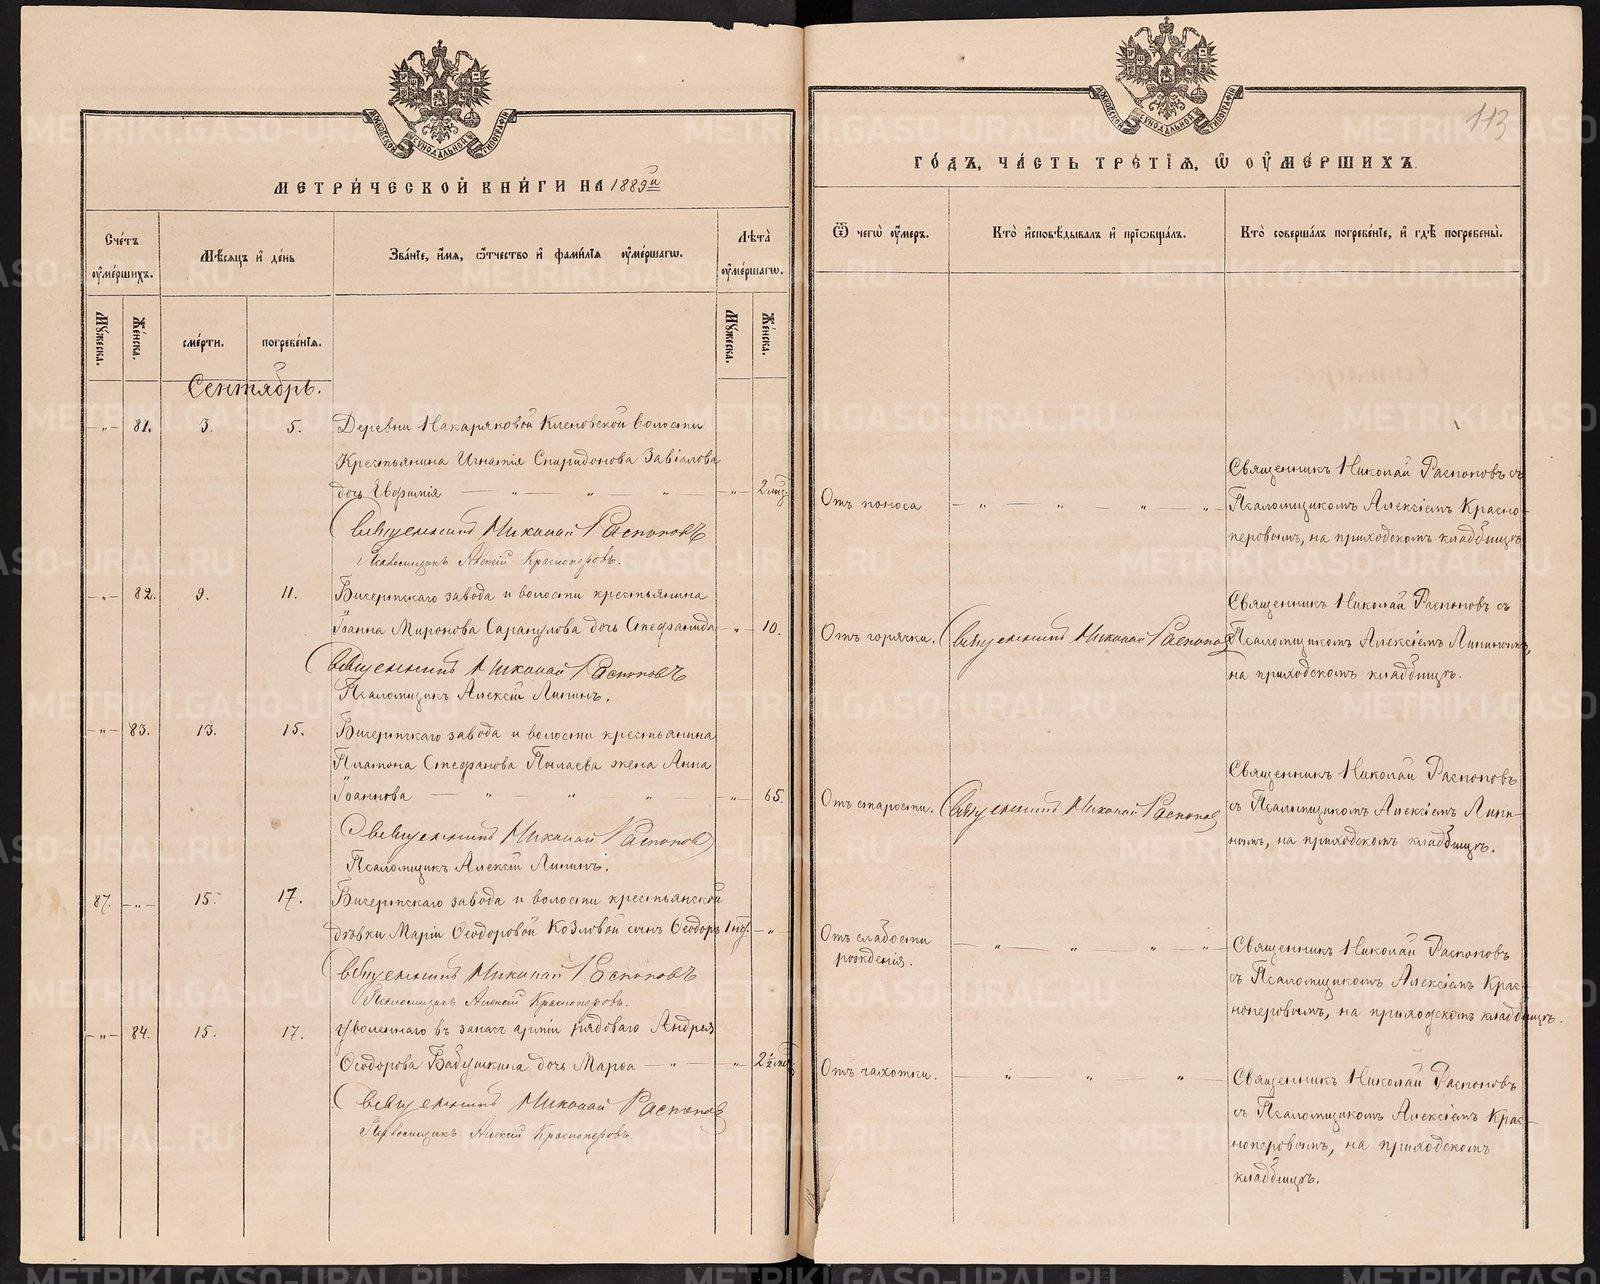 МЕТРИ́ЧЕСКОЙ КНИ́ГИ НА 1889й
Счетъ ѹмершихъ.
Мѣсяцъ и день
Званіе, имя, ѿтчество и фамилія ѹмершагѡ.
Лѣта ѹмершагѡ.
Мужеска.
Женска.
смерти.
погребенія.
Мужеска.
Женска.
Сентябрь.
-„- 82. 3. 5. Деревни Накаряковой Кленовской волости
Крестьянина Игнатія Спиридонова Завіалова
дочь Евфимія — „ — „ — „ — -„- 2 мѣс.
Священникъ Николай Распоповъ
Псаломщикъ Алексій Красноперовъ.
-„- 82. 9. 11. Бисертскаго завода и волости крестьянина
Іоанна Миронова Сарапулова дочь Стефанида -„- 10.
Священникъ Николай Распоповъ
Псаломщикъ Алексій Липинъ.
-„- 83. 13. 15. Бисертскаго завода и волости крестьянина
Платона Стефанова Пылаева жена Анна
Іоаннова — „ — „ — „ — -„- 65.
Священникъ Николай Распоповъ
Псаломщикъ Алексій Липинъ.
87. -„- 15. 17. Бисертскаго завода и волости крестьянской
дѣвки Маріи Ѳеодоровой Козловой сынъ Ѳеодоръ 1 нед. -„-
Священникъ Николай Распоповъ
Псаломщикъ Алексій Красноперовъ.
-„- 84. 15. 17. Уволеннаго въ запасъ арміи рядоваго Андрея
Ѳеодорова Бабушкина дочь Марѳа — „ — -„- 2½ мѣс
Священникъ Николай Распоповъ
Псаломщикъ Алексій Красноперовъ.
113
ГОДЪ, ЧАСТЬ ТРЕТІЯ, Ѡ ОУМЕРШИХЪ.
Ѿ чегѡ ѹмеръ.
Кто исповѣдывалъ и пріѡбщалъ.
Кто совершалъ погребеніе, и гдѣ погребены.
Священникъ Николай Распоповъ съ
Отъ поноса. — „ — „ — „ — „ Псаломщикомъ Алексіемъ Красно-
перовымъ, на приходскомъ кладбищѣ
Священникъ Николай Распоповъ съ
Отъ горячки. Священникъ Николай Распоповъ Псаломщикомъ Алексіемъ Липинымъ,
на приходскомъ кладбищѣ.
Священникъ Николай Распоповъ
Отъ старости. Священникъ Николай Распоповъ съ Псаломщикомъ Алексіемъ Липи-
нымъ, на приходскомъ кладбищѣ.
Отъ слабости
рожденія. — „ — „ — „ — „ Священникъ Николай Распоповъ
съ Псаломщикомъ Алексіемъ Крас-
ноперовымъ, на приходскомъ кладбищѣ.
Отъ чахотки. — „ — „ — „ Священникъ Николай Распоповъ
съ Псаломщикомъ Алексіемъ Крас-
ноперовымъ, на приходскомъ
кладбищѣ.
METRIKI.GASO-URAL.RU